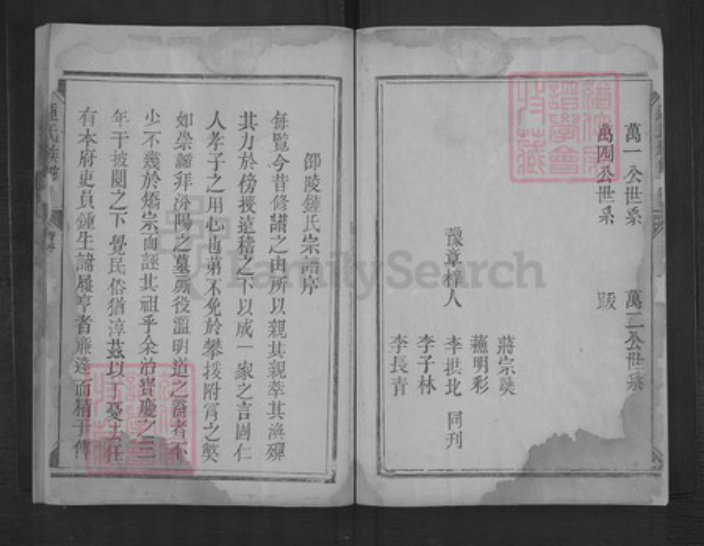 萬一公世系 萬二公世系
萬四公世系 跋
豫章梓人
蔣宗葵
蕭明彩
李拱北 同刊
李子林
李長青
邵陵鍾氏宗譜序
每覽今昔修諸之由所以親其親萃其渙殫
其力於傍搜遠稽之下以成一家之言固仁
人孝子之用心也第不免於攀援附會之獘
如崇韜拜汾陽之墓所役濫明道之裔者不
少不幾於矯宗而誣其祖乎余治寳慶之三
年于披閱之下覺民俗猶淳茲以丁憂去任
有本府吏員鍾生諱履亨者雍達而精于傳
鍾氏族譜
譜學會
收藏
FamilySearch